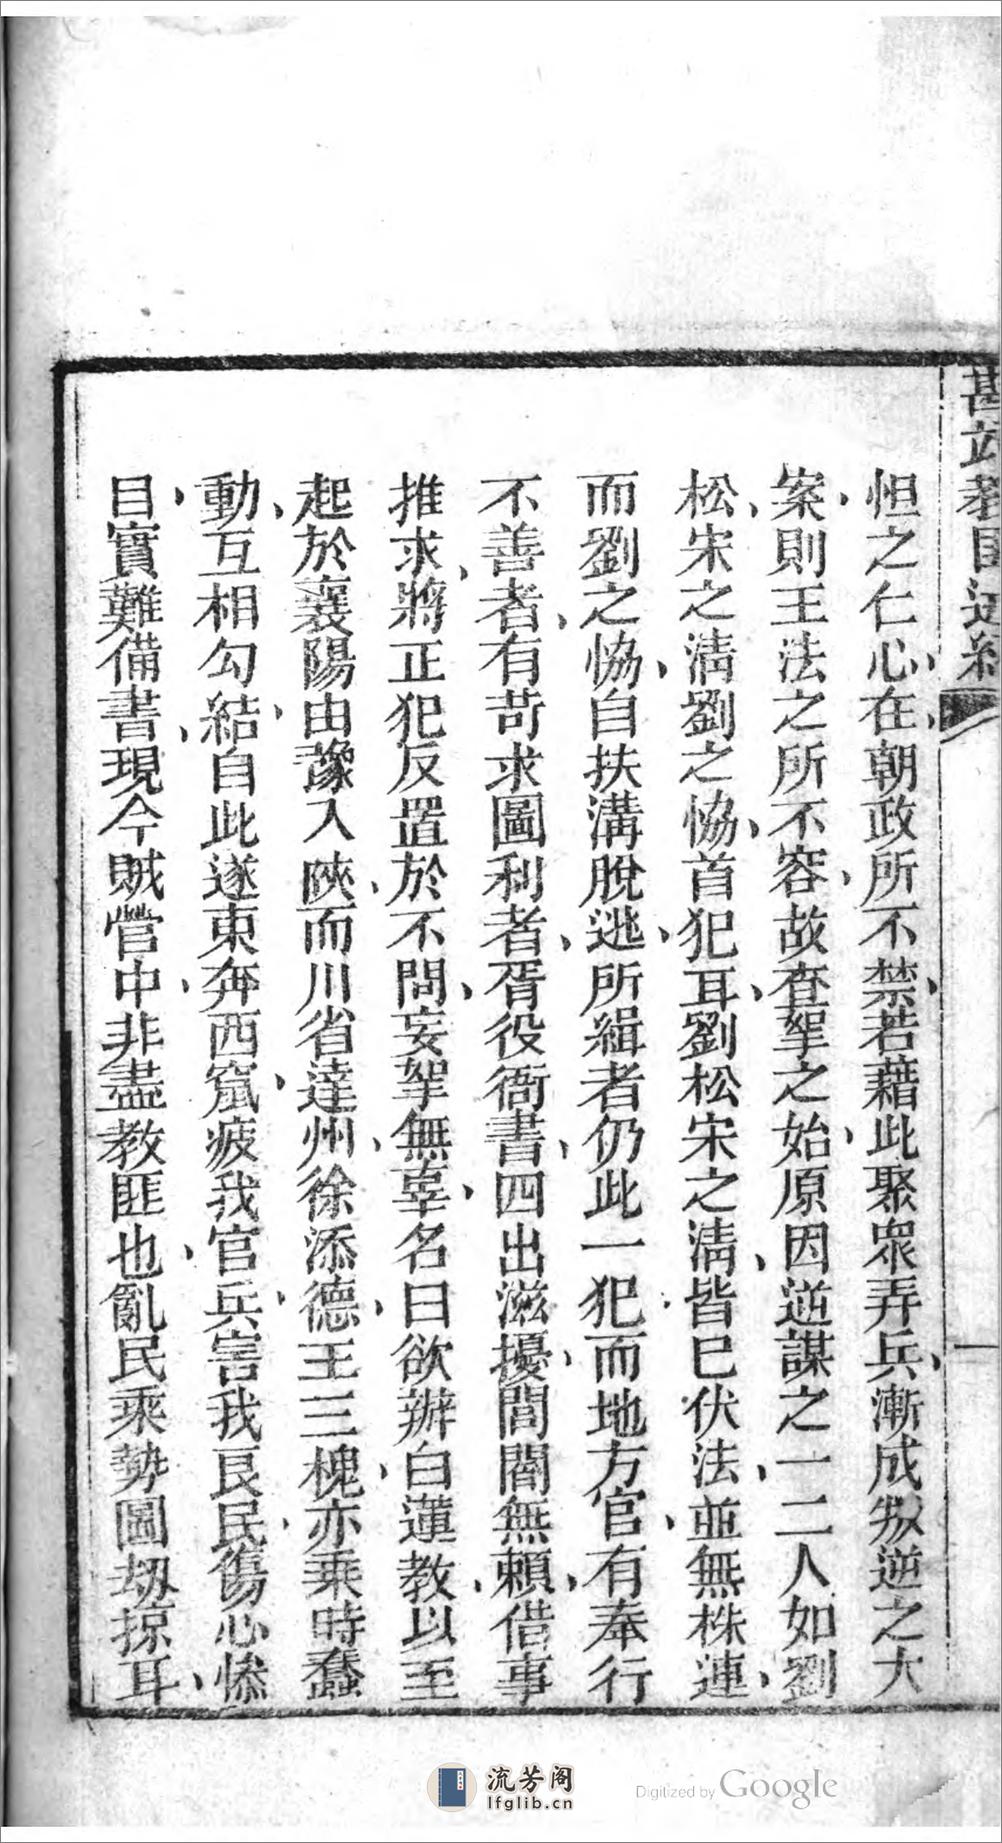 怛之仁心在朝政所不禁若藉此聚眾弄兵漸成叛逆之大
案則王法之所不容故查拏之始原因逆謀之一二人如劉
松宋之淸劉之協首犯耳劉松宋之淸皆已伏法並無株連
而劉之恊自扶溝脫逃所緝者仍此一犯而地方官有奉行
不善者有苛求圖利者胥役衙書四出滋擾閭閻無賴借事
推求將正犯反置於不問妄拏無辜名曰欲辦白蓮教以至
起於襄陽由豫入陝而川省達州徐添德王三槐亦乗時蠢
動互相勾結自此遂東奔西竄疲我官兵害我良民傷心慘
目實難備書現今賊營中非盡教匪也亂民乘勢圖刼掠耳
教匪
一
流芳阁
lfglib.cn
Digitized by Google